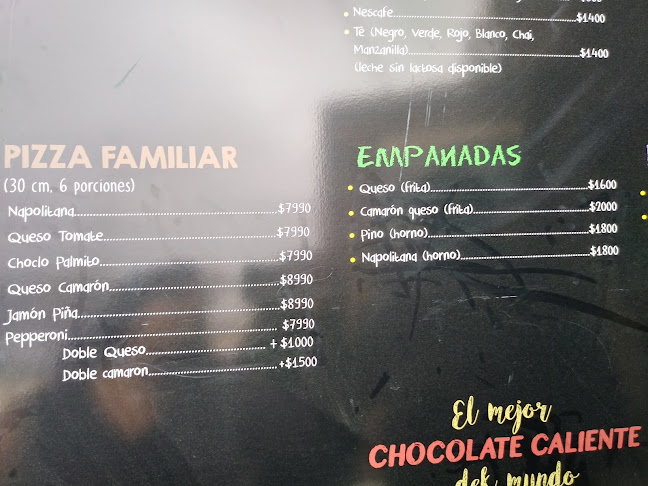 Nescafe...$1400
Té (Negro, Verde, Rojo, Blanco, Chai,
Manzanilla)...$1400
(leche sin lactosa disponible)
PIZZA FAMILIAR
(30 cm, 6 porciones)
Napolitana...$7990
Queso Tomate...$7990
Choclo Palmito...$7990
Queso Camarón...$8990
Jamón Piña...$8990
Pepperoni...$7990
Doble Queso...+ $1000
Doble camaron...+$1500
EMPANADAS
Queso (frita)...$1600
Camarón queso (frita)...$2000
Pino (horno)...$1800
Napolitana (horno)...$1800
El mejor
CHOCOLATE CALIENTE
dek mundo